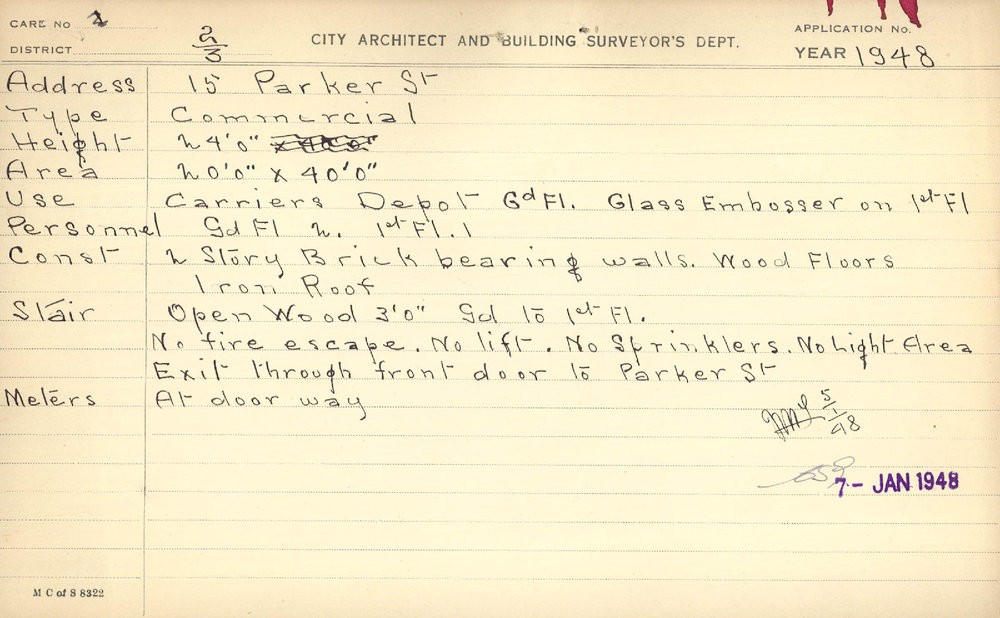 CARE No 2
DISTRICT 2/3
CITY ARCHITECT AND BUILDING SURVEYOR'S DEPT.
APPLICATION No.
YEAR 1948
Address 15 Parker St
Type Commercial
Height 24'0"
Area 20'0" x 40'0"
Use Carriers Depot Gd Fl. Glass Embosser on 1st Fl
Personnel Gd Fl 2. 1st Fl. 1
Const 2 Story Brick bearing walls. Wood Floors
Iron Roof
Stair Open Wood 3'0" Gd to 1st Fl.
No fire escape. No lift. No Sprinklers. No Light Area
Exit through front door to Parker St
Meters At door way
5/1/48
7- JAN 1948
M C of S 8322